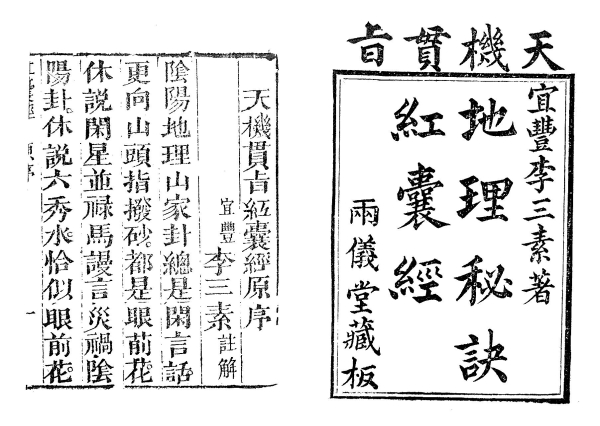 天機貫㫖
宜豐李三素著
地理秘訣
紅囊經
兩儀堂藏板
天機貫㫖紅囊經原序
宜豐 李三素 註解
陰陽地理山家卦總是閑言話
更向山頭指撥砂。都是眼前花
休說閑星並祿馬謾言災禍陰
陽卦。休說六秀水恰似眼前花。
一